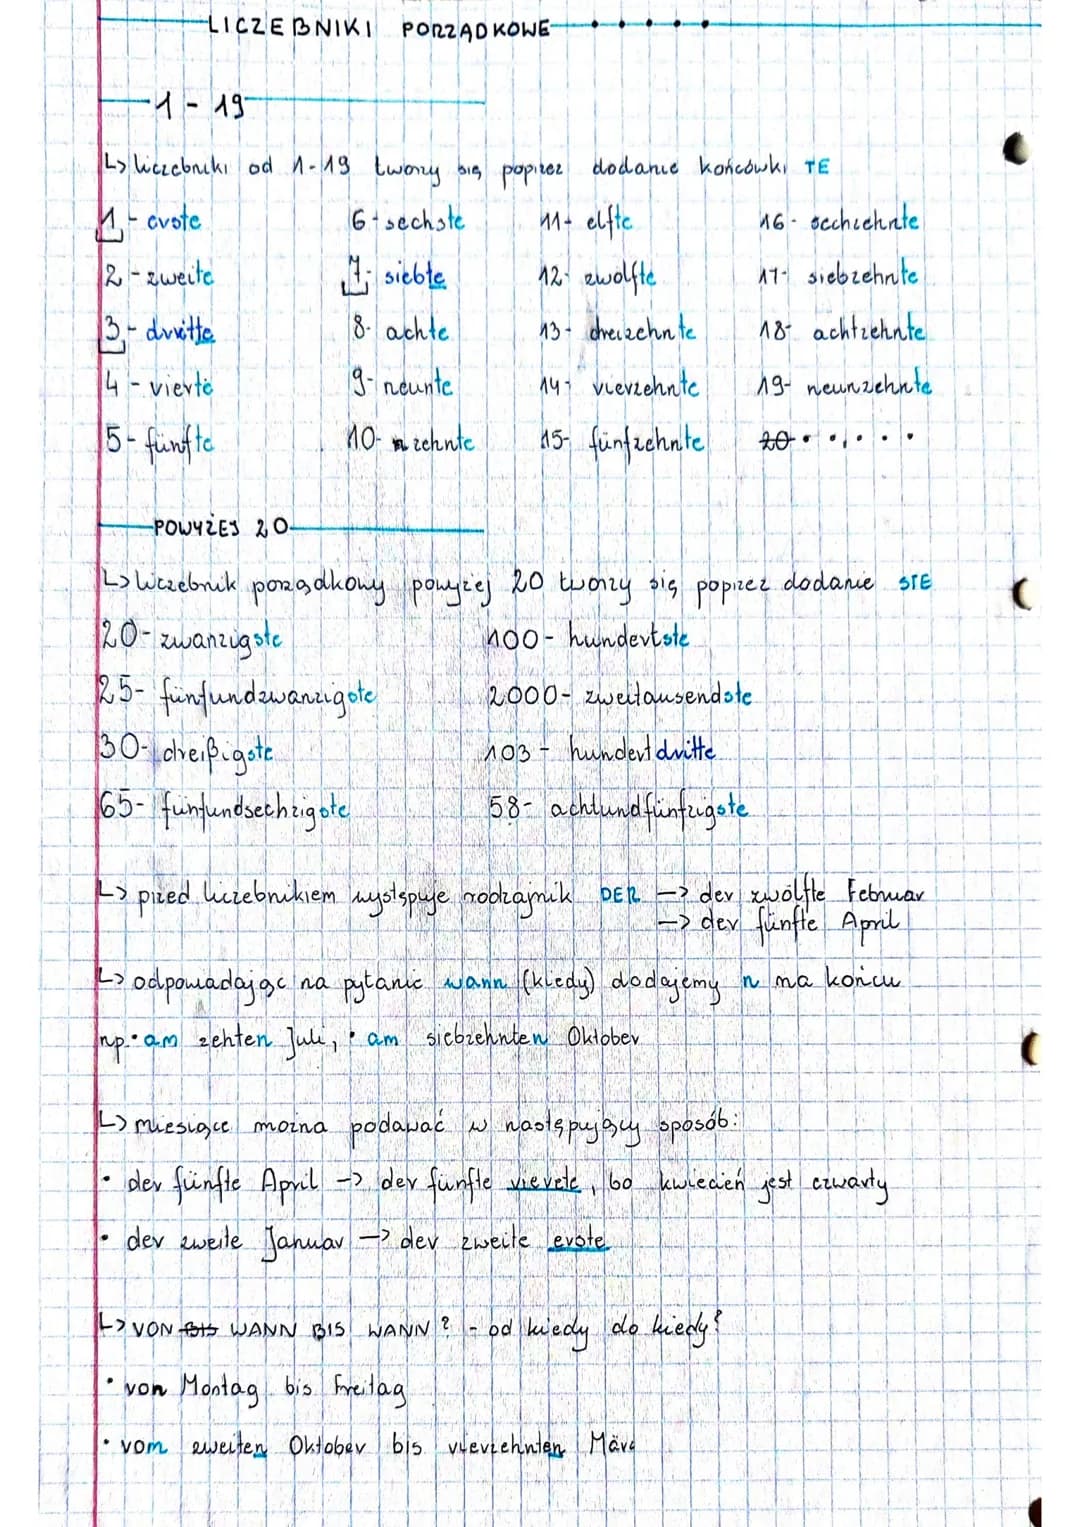 LICZEBNIKI PORZĄDKOWE
1 - 19
↳ liczebniki od 1-19 tworzy się poprzez dodanie końcówki TE
1 - erste 6 - sechste 11 - elfte 16 - sechzehnte
2 - zweite 7 - siebte 12 - zwölfte 17 - siebzehnte
3 - dritte 8 - achte 13 - dreizehnte 18 - achtzehnte
4 - vierte 9 - neunte 14 - vierzehnte 19 - neunzehnte
5 - fünfte 10 - zehnte 15 - fünfzehnte 20 . . . . .
POWYŻEJ 20
↳ liczebnik porządkowy powyżej 20 tworzy się poprzez dodanie STE
20 - zwanzigste 100 - hundertste
25 - fünfundzwanzigste 2000 - zweitausendste
30 - dreißigste 103 - hundertdritte
65 - fünfundsechzigste 58 - achtundfünfzigste
↳ przed liczebnikiem występuje rodzajnik DER -> der zwölfte Februar
-> der fünfte April
↳ odpowadając na pytanie wann (kiedy) dodajemy n na końcu
np. • am zehten Juli, • am siebzehnten Oktober
↳ miesiące można podawać w następujący sposób:
• der fünfte April -> der fünfte vierete, bo kwiecień jest czwarty
• der zweite Januar -> der zweite erste
↳ VON BIS WANN BIS WANN? - od kiedy do kiedy?
• von Montag bis Freitag
• vom zweiten Oktober bis vierzehnten März